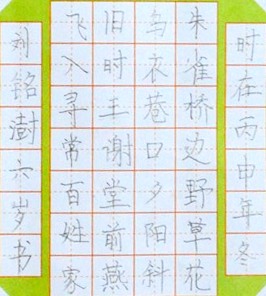 时在丙申年冬
朱雀桥边野草花
乌衣巷口夕阳斜
旧时王谢堂前燕
飞入寻常百姓家
刘铭澍六岁书